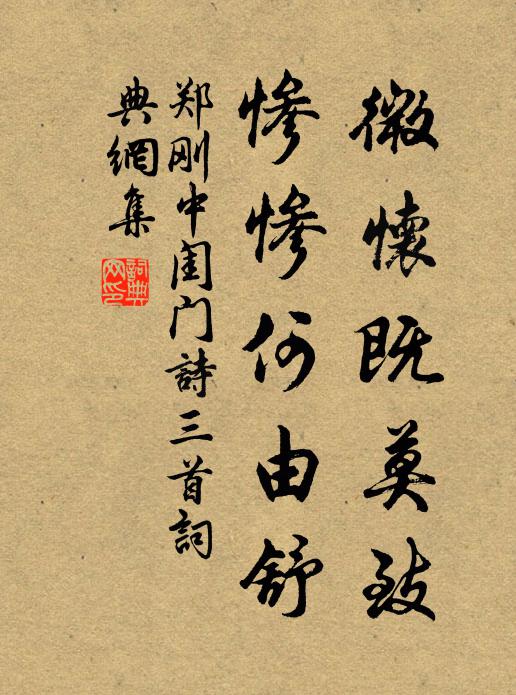 微懷既莫致
慘慘何由舒
郑刚中闺门詩三首詞
典網集
詞典
网印